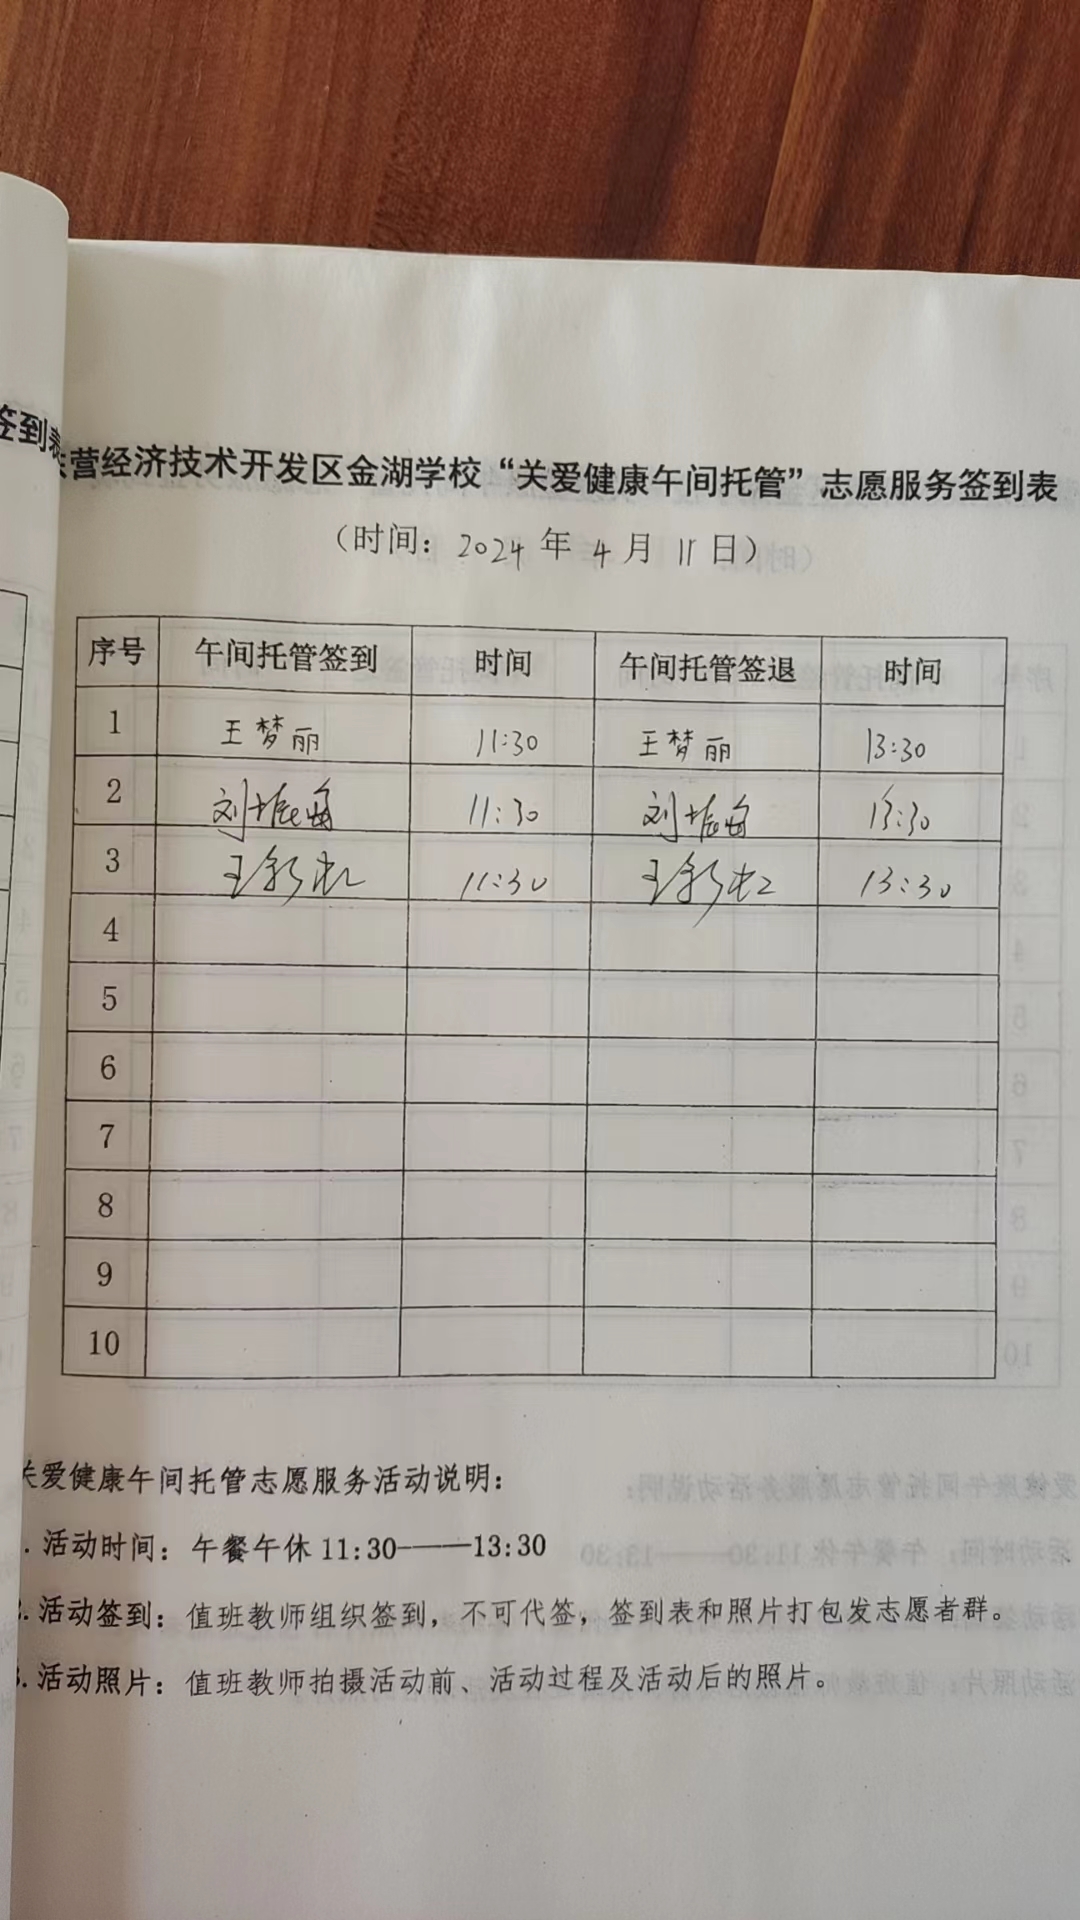 签到表
营经济技术开发区金湖学校“关爱健康午间托管”志愿服务签到表
（时间：2024 年 4 月 11 日）
序号 午间托管签到 时间 午间托管签退 时间
1 王梦丽 11:30 王梦丽 13:30
2 刘 11:30 刘 13:30
3 王彩虹 11:30 王彩虹 13:30
4
5
6
7
8
9
10
关爱健康午间托管志愿服务活动说明：
. 活动时间：午餐午休 11:30——13:30
2. 活动签到：值班教师组织签到，不可代签，签到表和照片打包发志愿者群。
3. 活动照片：值班教师拍摄活动前、活动过程及活动后的照片。